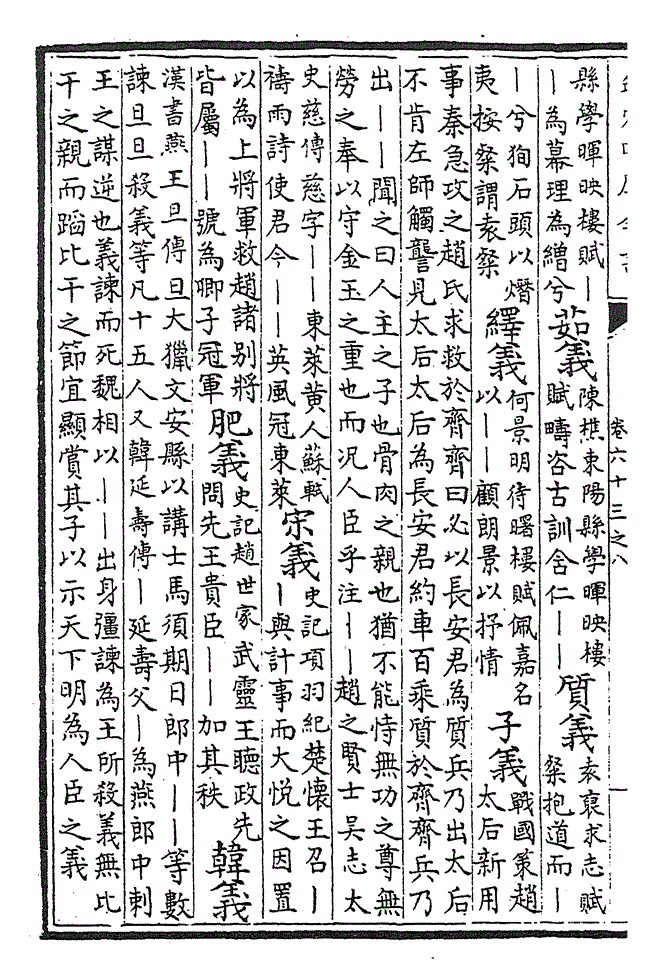 卷六十三之八
縣學暉映樓賦｜
｜為幕理為繒兮
茹義
陳樵東陽縣學暉映樓
賦疇咨古訓舍仁｜｜
質義
袁裒求志賦
粲抱道而｜
｜兮狥石頭以熸
夷按粲謂袁粲
繹義
何景明待曙樓賦佩嘉名
以｜｜顧朗景以抒情
子義
戰國策趙
太后新用
事秦急攻之趙氏求救於齊齊曰必以長安君為質兵乃出太后
不肯左師觸讋見太后太后為長安君約車百乘質於齊齊兵乃
出｜｜聞之曰人主之子也骨肉之親也猶不能恃無功之尊無
勞之奉以守金玉之重也而况人臣乎注｜｜趙之賢士吳志太
史慈傳慈字｜｜東萊黃人蘇軾
禱雨詩使君今｜｜英風冠東萊
宋義
史記項羽紀楚懷王召｜
｜與計事而大悅之因置
以為上將軍救趙諸别將
皆屬｜｜號為卿子冠軍
肥義
史記趙世家武靈王聽政先
問先王貴臣｜｜加其秩
韓義
漢書燕王旦傳旦大獵文安縣以講士馬須期日郎中｜｜等數
諫旦旦殺義等凡十五人又韓延壽傳｜延壽父｜為燕郎中剌
王之謀逆也義諫而死魏相以｜｜出身彊諫為王所殺義無比
干之親而蹈比干之節宜顯賞其子以示天下明為人臣之義